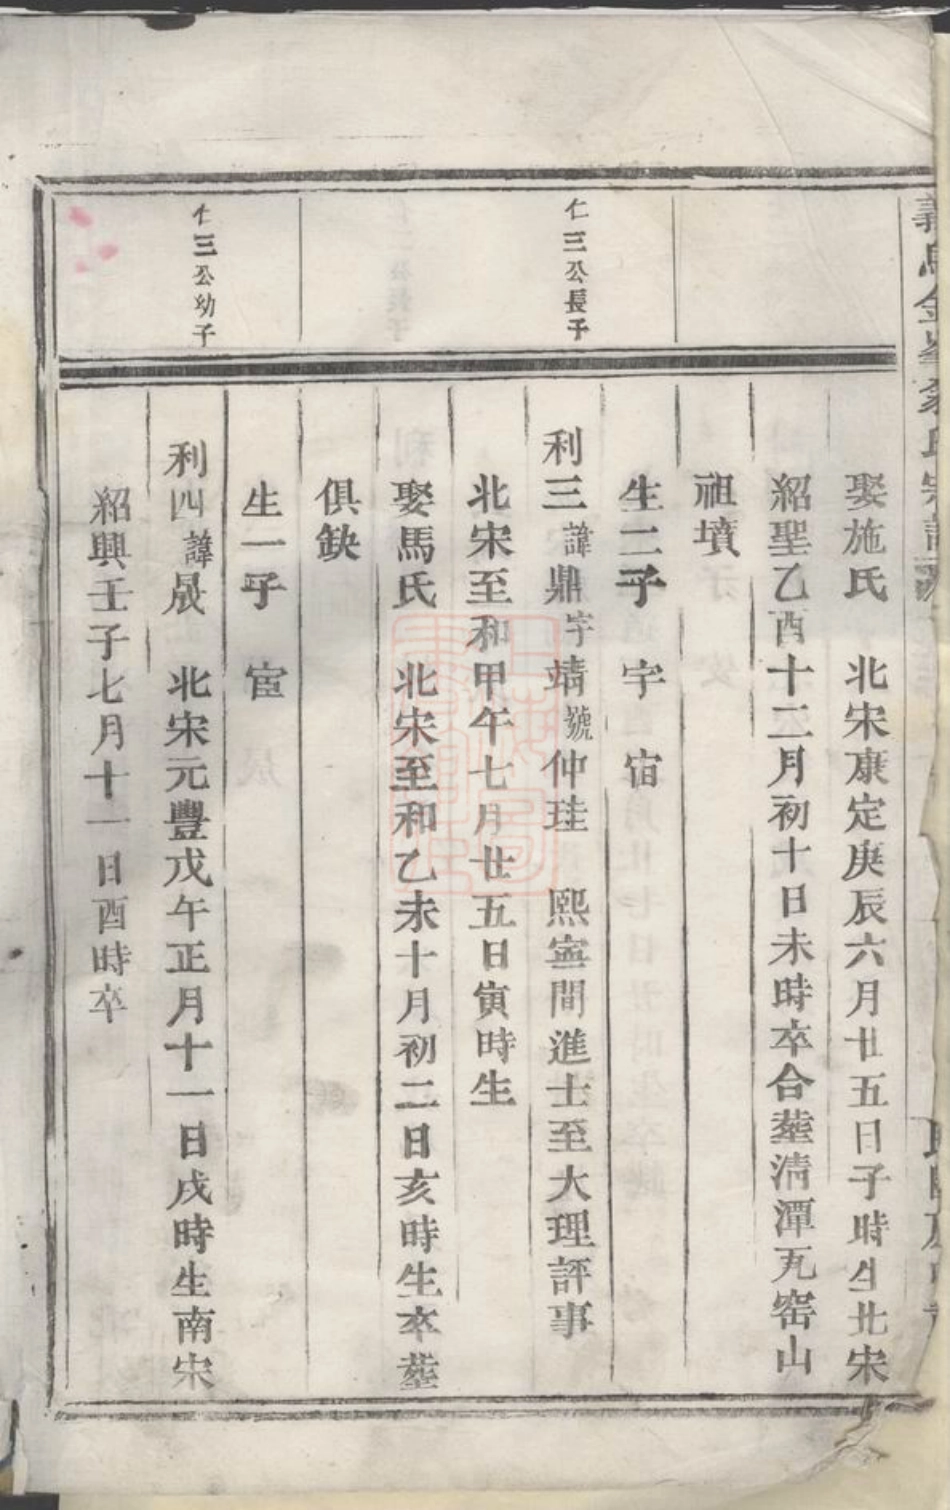 娶施氏 北宋康定庚辰六月廿五日子時生北宋
紹聖乙酉十二月初十日未時卒合塟清潭瓦窑山
祖墳
生二子 宇 宿
仁三公長子
利三諱鼎字靖號仲珪 熙寧間進士至大理評事
北宋至和甲午七月廿五日寅時生
娶馬氏 北宋至和乙未十月初二日亥時生卒塟
俱缺
生一子 宦
仁三公幼子
利四諱晟 北宋元豐戊午正月十一日戌時生南宋
紹興壬子七月十一日酉時卒